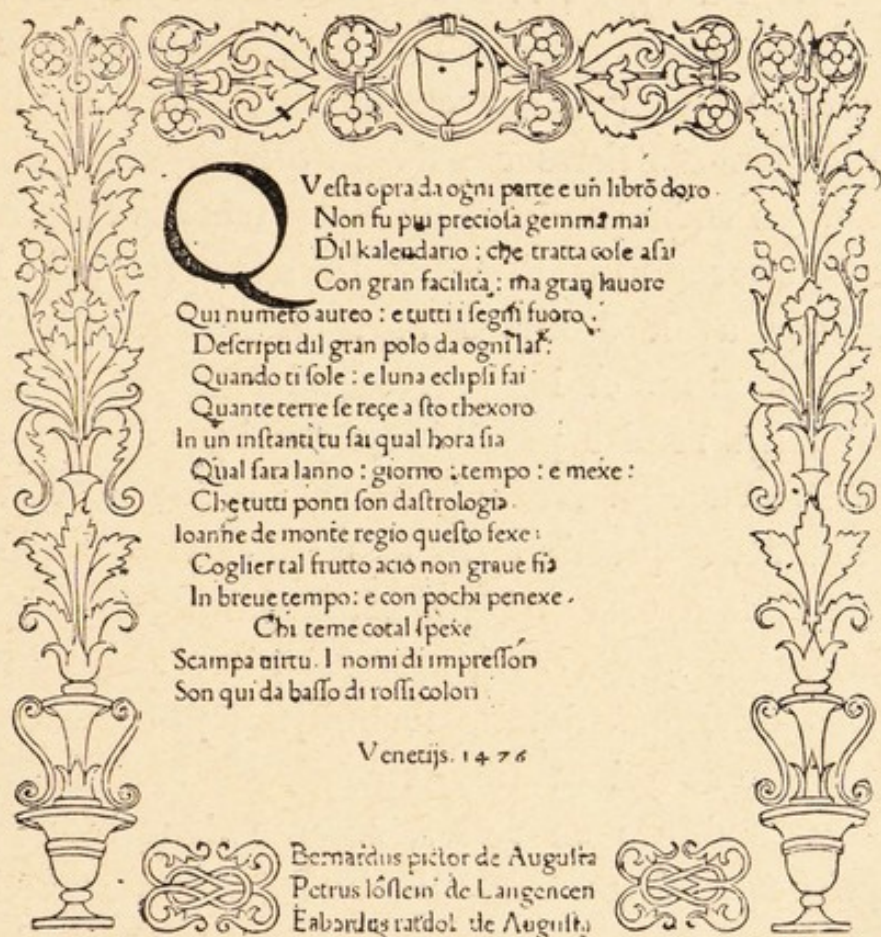 QVeſta opra da ogni parte e un librō doro.
Non fu piu precioſa gemma mai
Dil kalendario : che tratta coſe aſai
Con gran facilita : ma gran lauore
Qui numero aureo : e tutti i ſegni fuoro.
Deſcripti dil gran polo da ogni lai:
Quando ti ſole : e luna eclipſi fai
Quante terre ſe reçe a ſto thexoro.
In un inſtanti tu ſai qual hora ſia
Qual ſara lanno : giorno : tempo : e mexe :
Che tutti ponti ſon daſtrologia.
Ioanne de monte regio queſto fexe :
Coglier tal frutto acio non graue ſia
In breue tempo : e con pochi penexe.
Chi teme cotal ſpexe
Scampa uirtu. I nomi di impreſſori
Son qui da baſſo di roſſi colori
Venetijs. 1476
Bernardus pictor de Auguſta
Petrus lôſlein de Langencen
Erhardus ratdolt de Auguſta